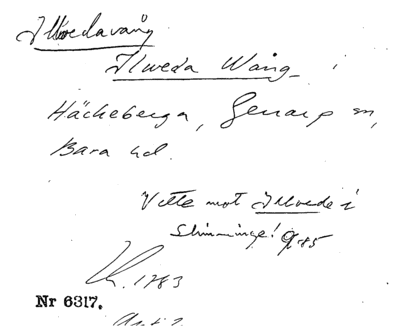 Illvedavång
Ilweda Wång i
Häckeberga, Genarp sn,
Bara hd.
Vette mot Illvede i
Slimminge!
1783
Nr 6317.